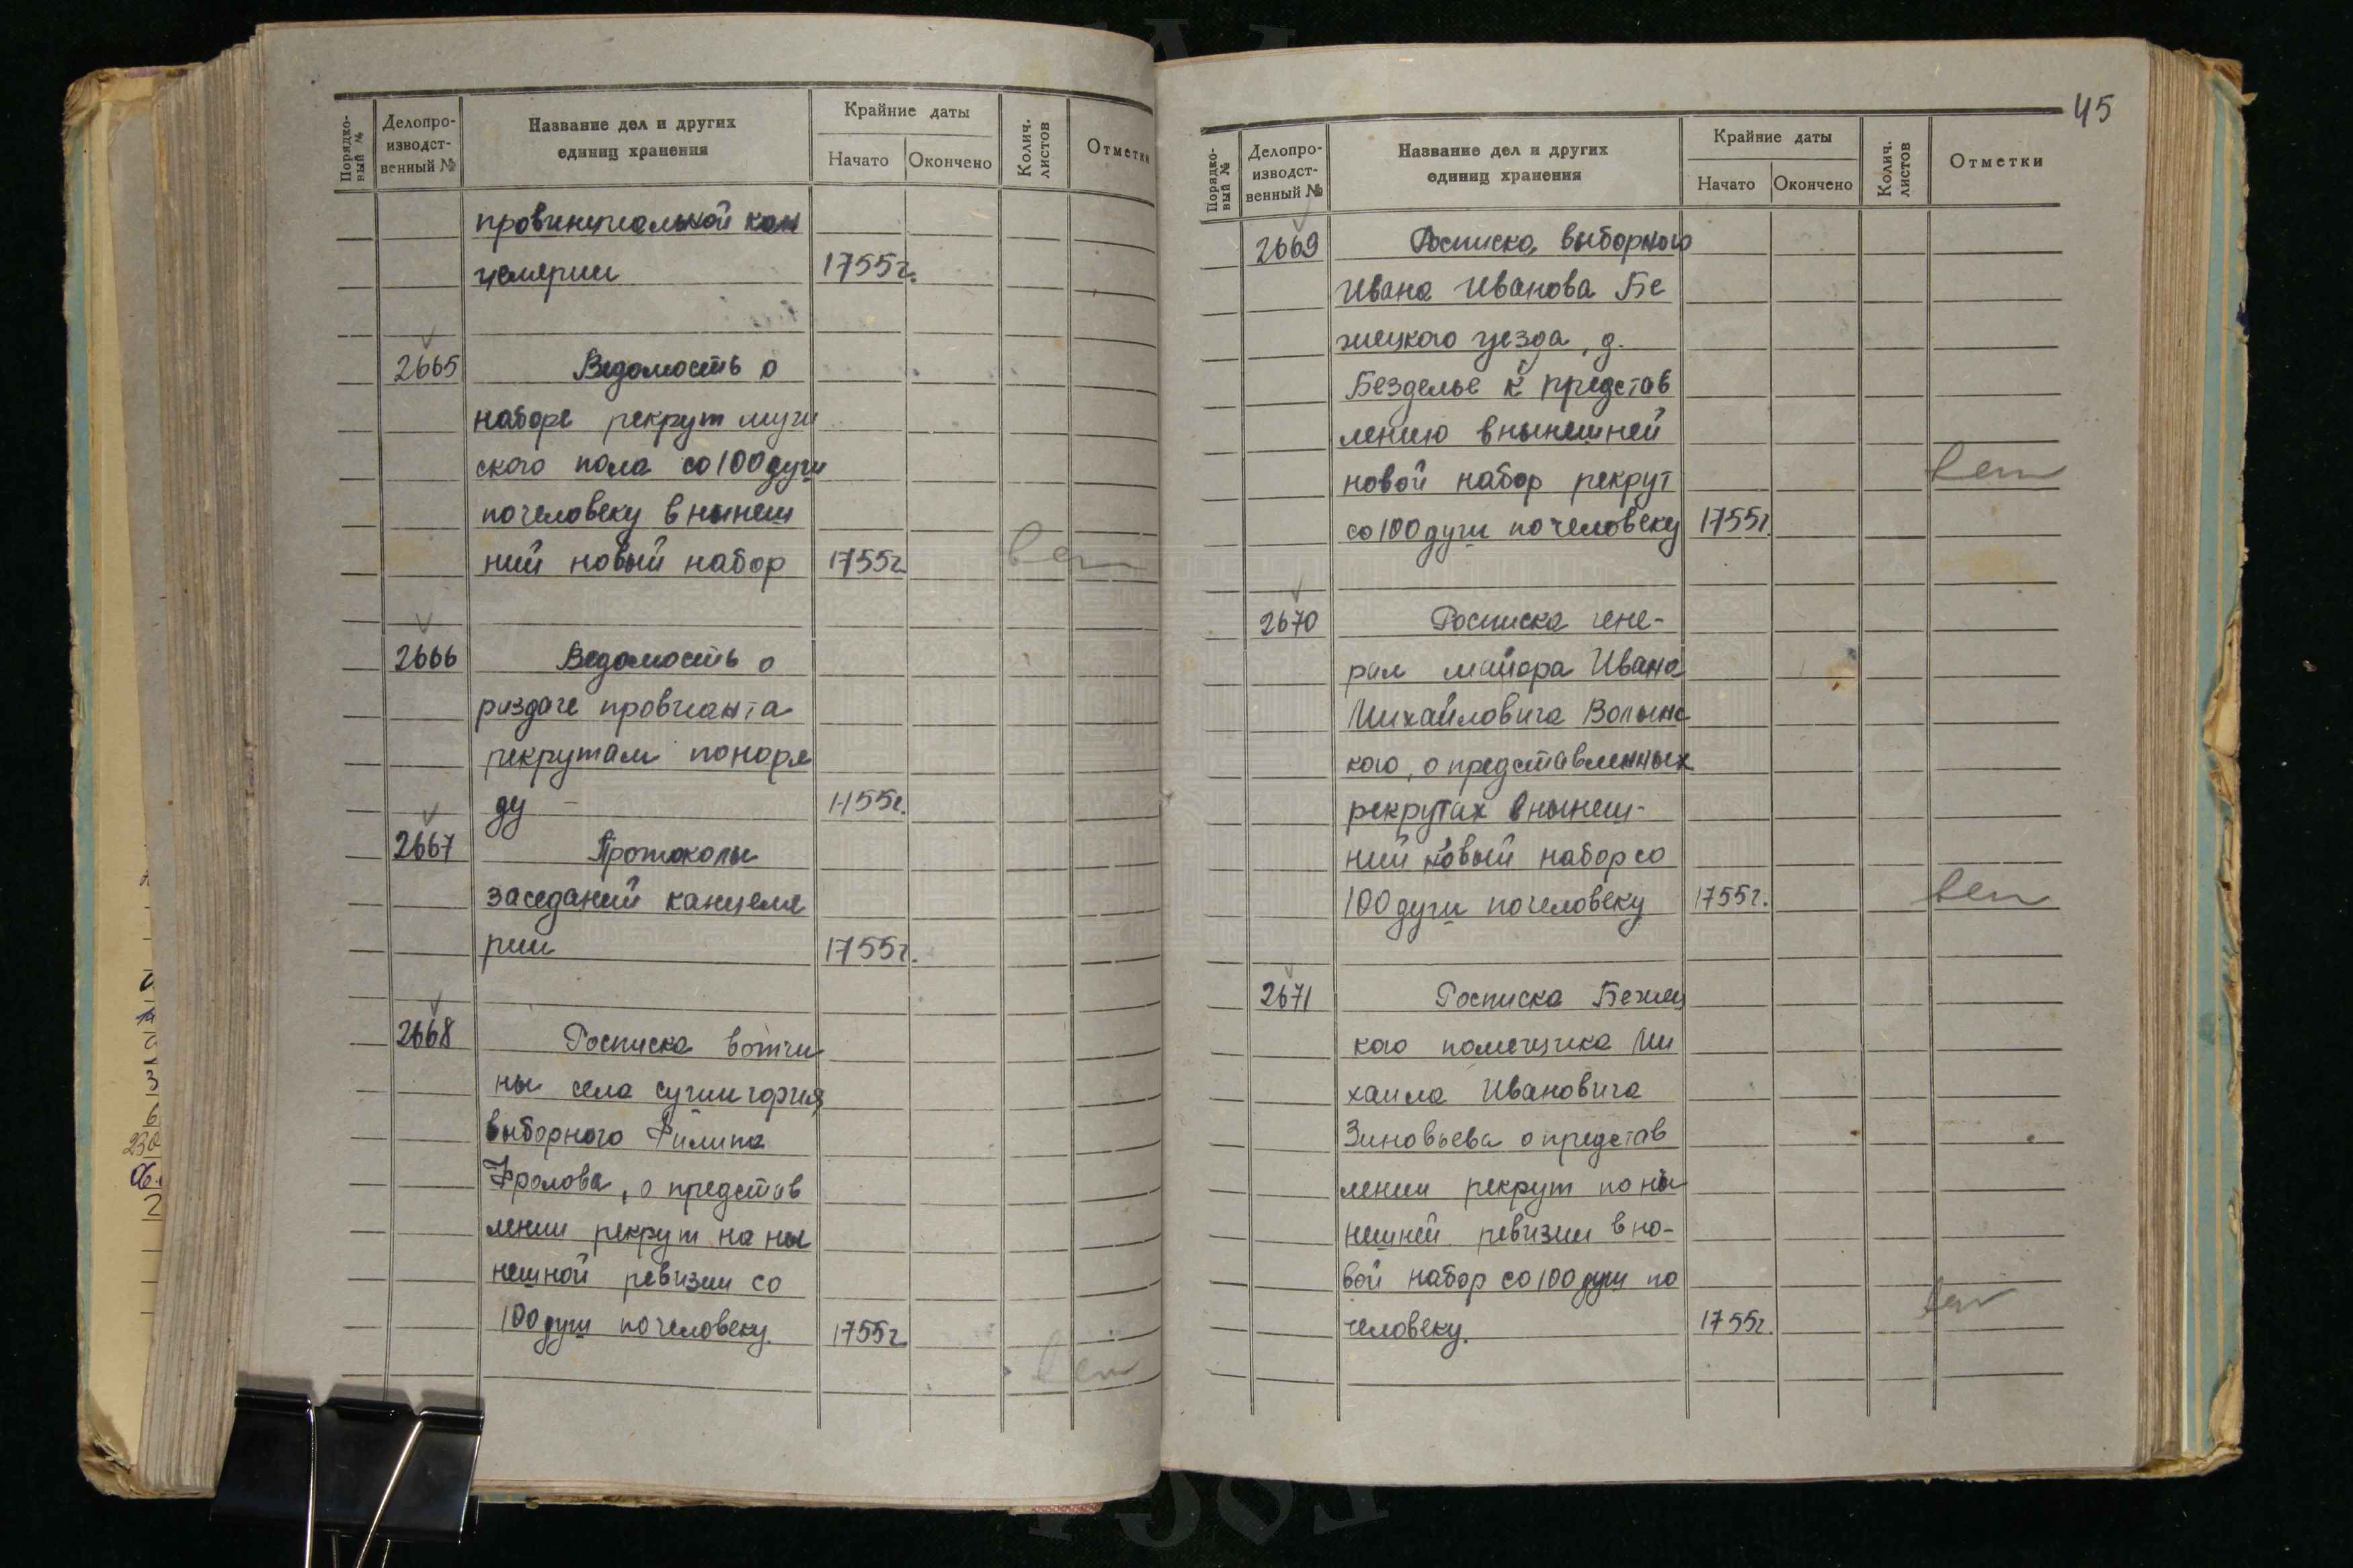 Порядко-
вый №
Делопро-
изводст-
венный №
Название дел и других
единиц хранения
Крайние даты
Начато
Окончено
Колич.
листов
Отметки
провинциальной кан
целярии 1755г.
2665 Ведомость о
наборе рекрут мужи
ского пола со 100 душ
по человеку в нынеш
ний новый набор 1755г
2666 Ведомость о
раздаче провианта
рекрутам по наря
ду - 1755г.
2667 Протоколы
заседаний канцеля
рии 1755г.
2668 Росписка вотчи
ны села
выборного Филипа
Фролова, о представ
лении рекрут на ны
нешной ревизии со
100 душ по человеку. 1755г
45
Порядко-
вый №
Делопро-
изводст-
венный №
Название дел и других
единиц хранения
Крайние даты
Начато
Окончено
Колич.
листов
Отметки
2669 Росписка, выборного
Ивана Иванова Бе
жецкого уезда, д.
Безделье к представ
лению в нынешней
новой набор рекрут
со 100 душ по человеку 1755г.
2670 Росписка гене-
рал майора Ивана
Михайловича Волынс
кого, о представленных
рекрутах в нынеш-
ний новый набор со
100 душ по человеку 1755г.
2671 Росписка Бежец
кого помещика Ми
хаила Ивановича
Зиновьева о представ
лении рекрут по ны
нешней ревизии в но-
вой набор со 100 душ по
человеку. 1755г.